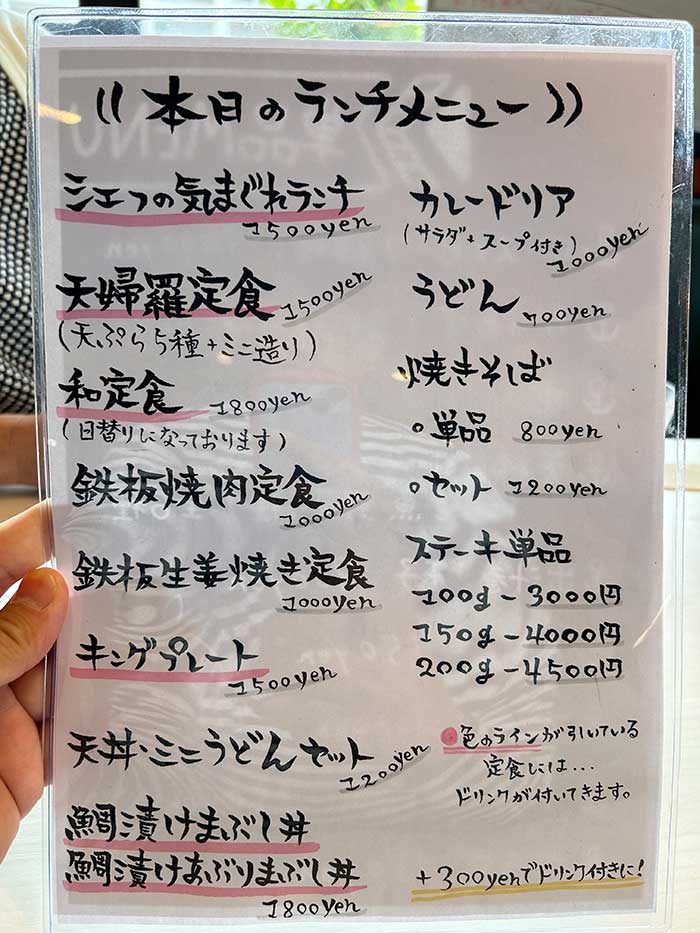 ((本日のランチメニュー))
シェフの気まぐれランチ
1500yen
天婦羅定食 1500yen
(天ぷら5種+ミニ造り)
和定食 1800yen
(日替りになっております)
鉄板焼肉定食
1000yen
鉄板生姜焼き定食
1000yen
キングプレート
1500yen
天丼・ミニうどんセット
1200yen
鯛漬けまぶし丼
鯛漬けあぶりまぶし丼
1800yen
カレードリア
(サラダ+スープ付き)
1000yen
うどん
700yen
焼きそば
○単品 800yen
○セット 1200yen
ステーキ単品
100g-3000円
150g-4000円
200g-4500円
●色のラインが引いている
定食には...
ドリンクが付いてきます。
+300yenでドリンク付きに!